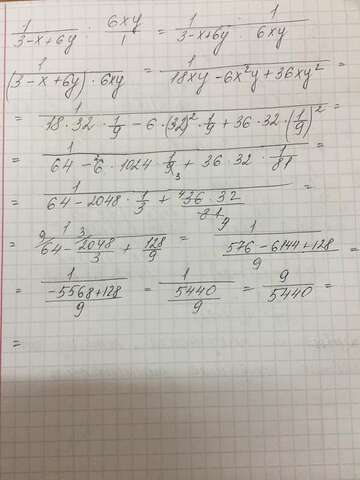 1/(3-x+6y) : 6xy/1 = 1/(3-x+6y) · 1/(6xy) =
1/((3-x+6y)·6xy) = 1/(18xy-6x²y+36xy²) =
= 1/(18·32·1/9-6·(32)²·1/9+36·32·(1/9)²) =
= 1/(64-²6·1024·1/9₃+36·32·1/81) =
= 1/(64-2048·1/3+⁴36·32/81₉) =
= 1/(⁹⁄64-³⁄2048/3+128/9) = 1/((576-6144+128)/9) =
= 1/((-5568+128)/9) = 1/(5440/9) = 9/5440 =
=